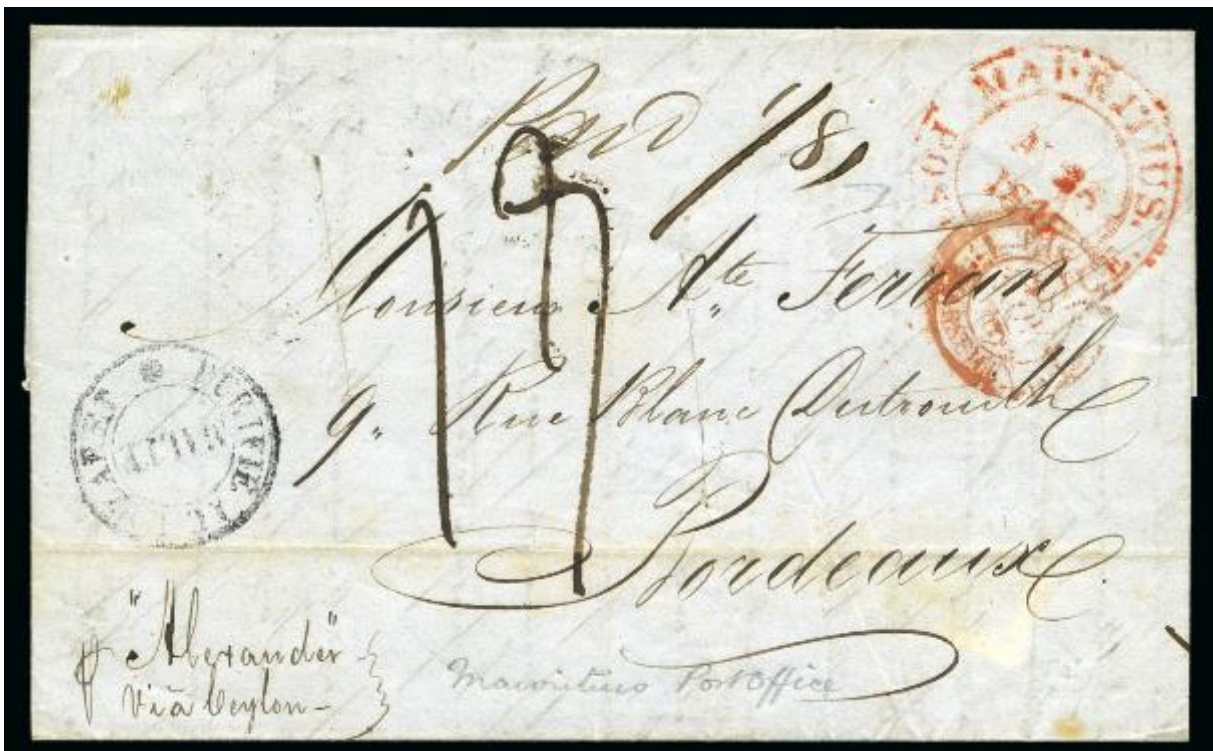 Paid 1/8,
MAURITIUS. POST
Monsieur Ate Ferran
9. Rue Blanc Dutrouilh
PURIFIE AU LAZARET
Bordeaux
"Alexander"
Via Ceylon -
Mauritius Post Office